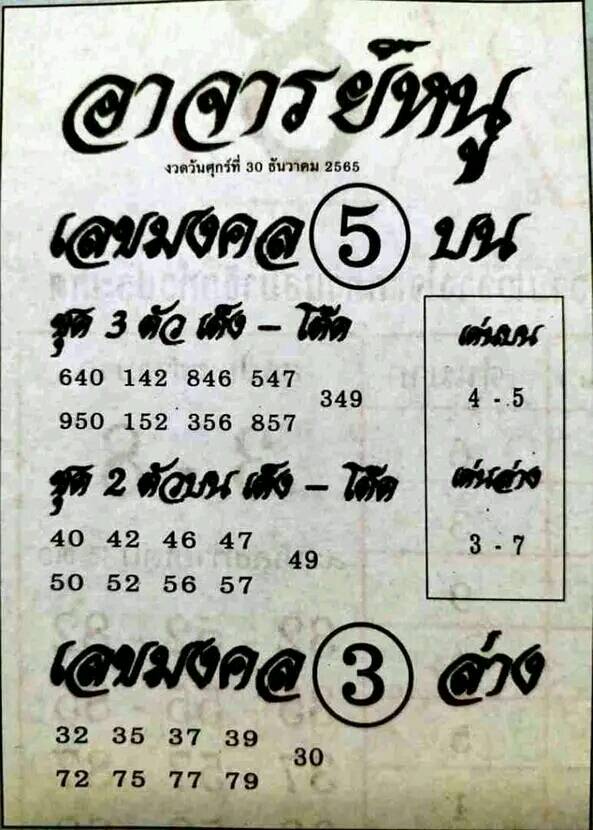 อาจารย์หนู
งวดวันศุกร์ที่ 30 ธันวาคม 2565
เลขมงคล 5 บน
ชุด 3 ตัว เต็ง – โต๊ด
640 142 846 547
349
950 152 356 857
เด่นบน
4 - 5
ชุด 2 ตัวบน เต็ง – โต๊ด
40 42 46 47
49
50 52 56 57
เด่นล่าง
3 - 7
เลขมงคล 3 ล่าง
32 35 37 39
30
72 75 77 79